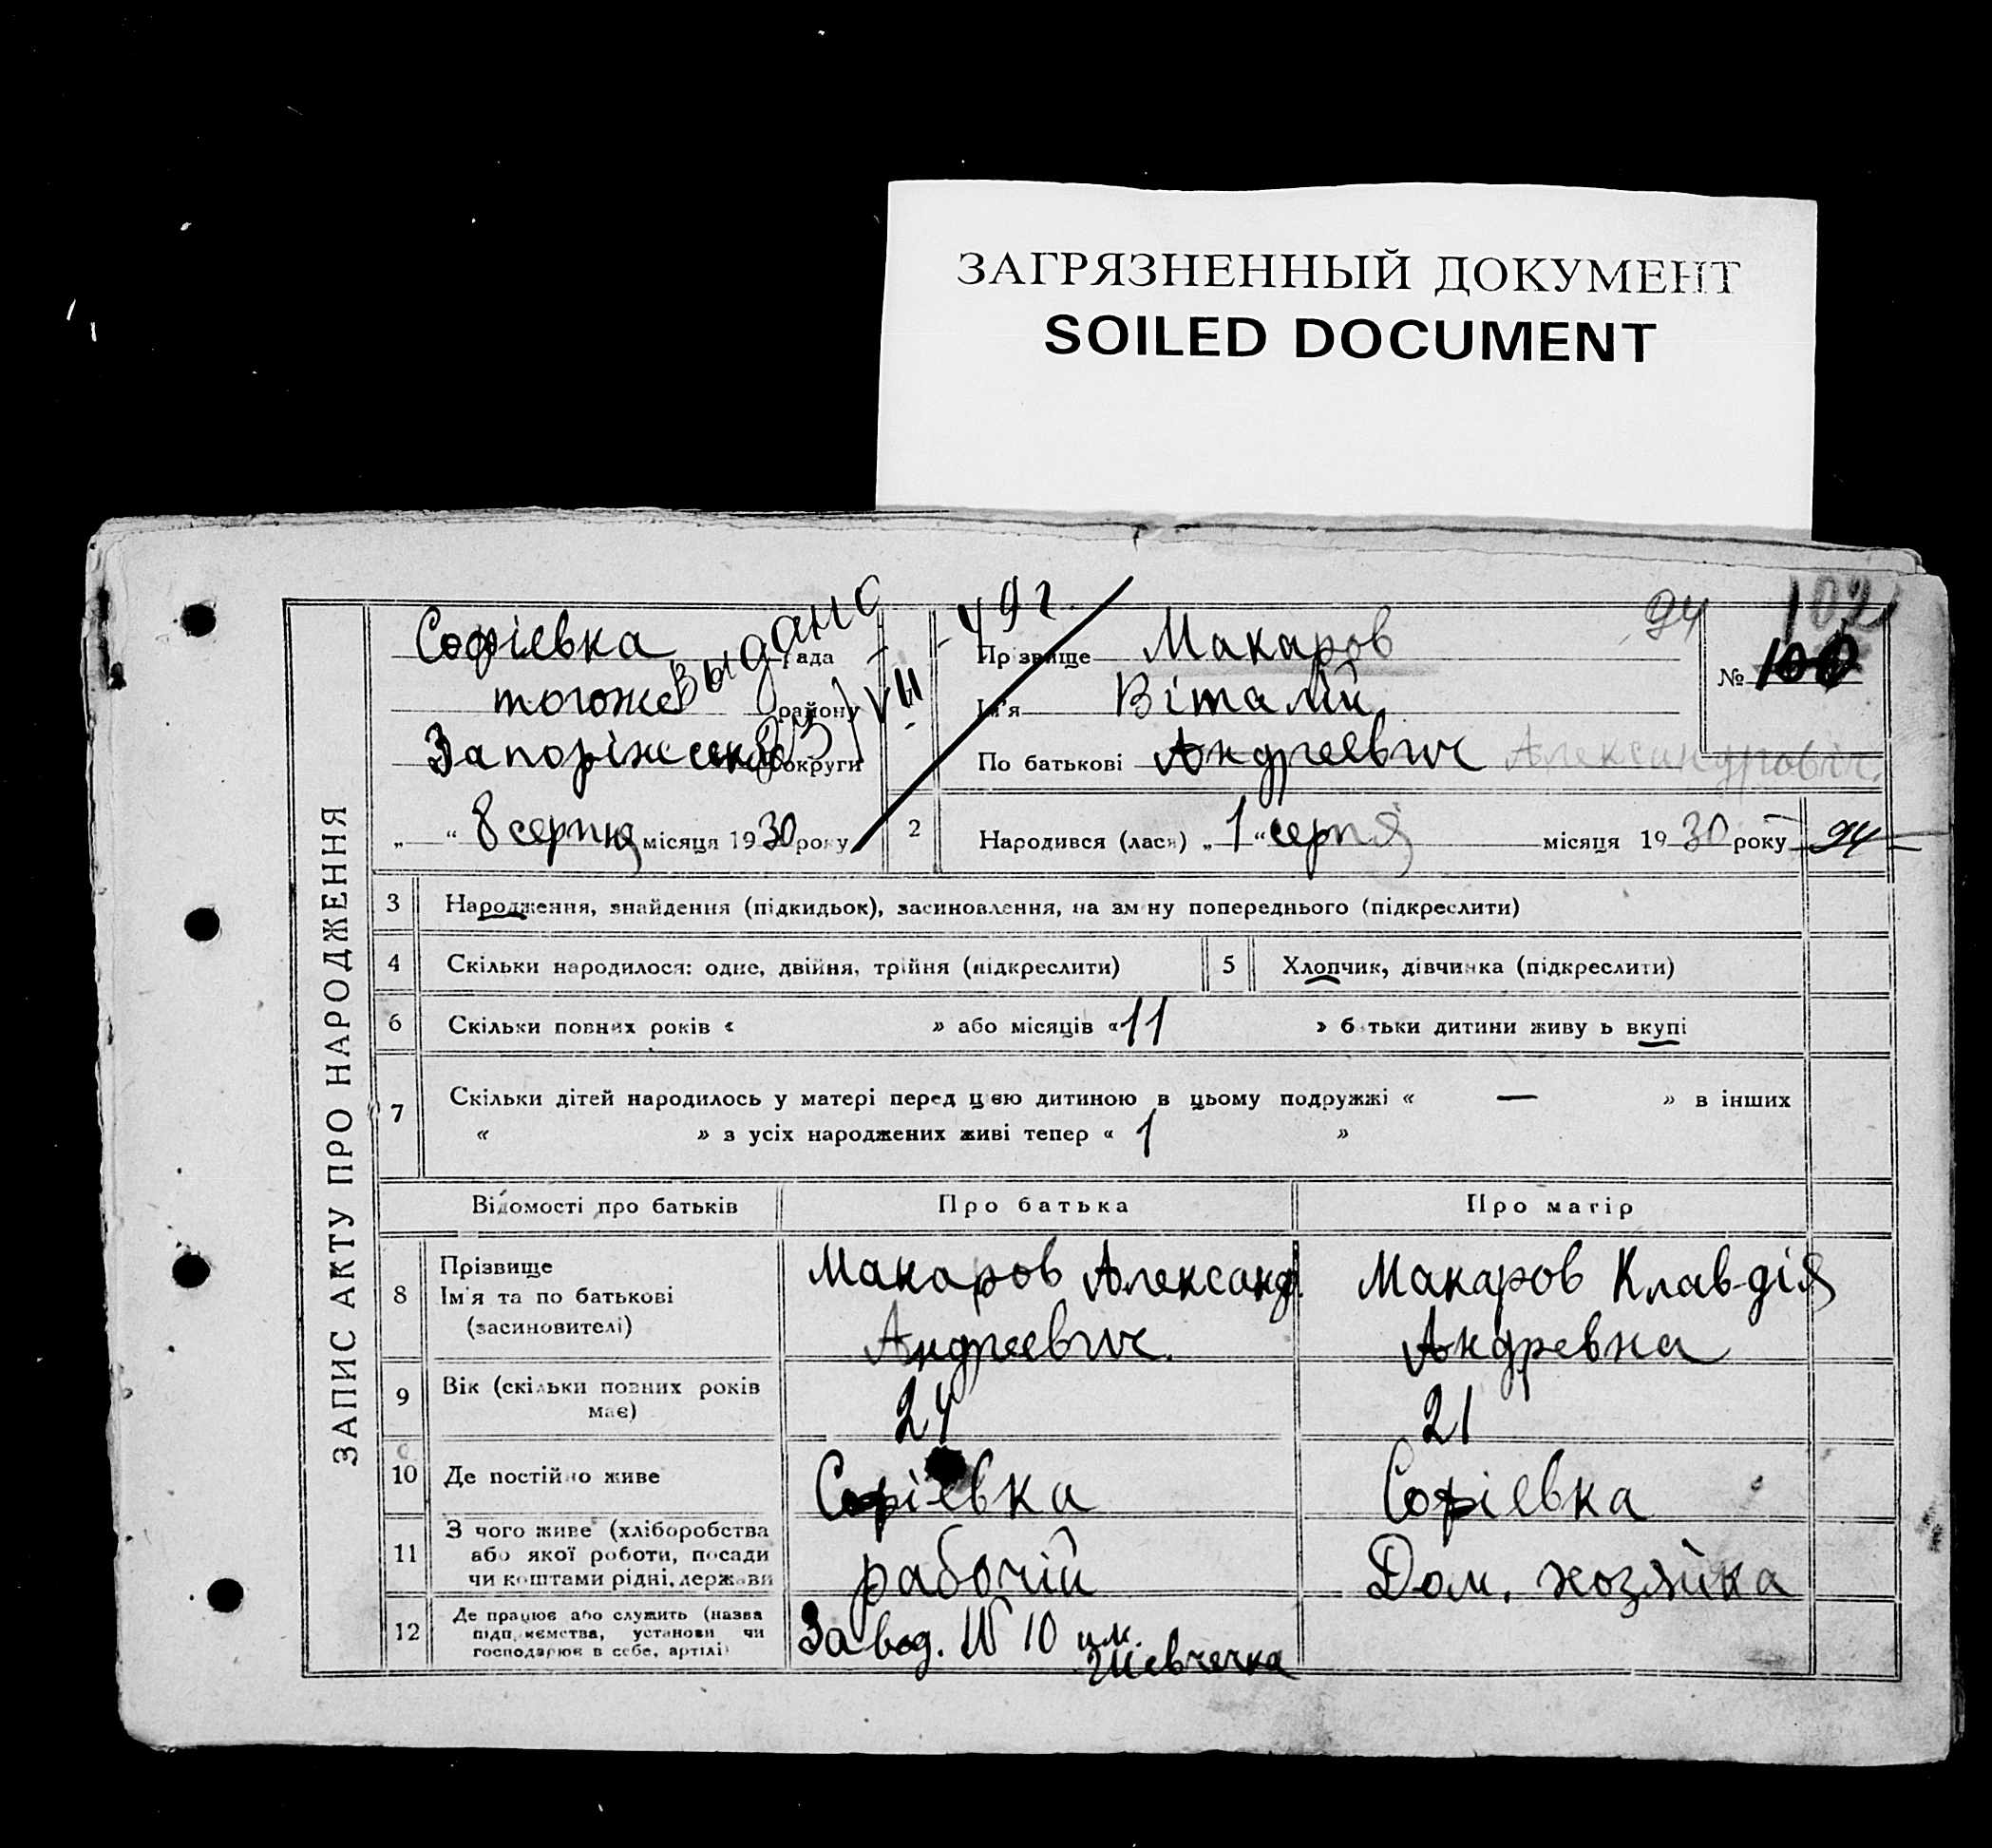 ЗАГРЯЗНЕННЫЙ ДОКУМЕНТ
SOILED DOCUMENT
ЗАПИС АКТУ ПРО НАРОДЖЕННЯ
Софіевка рада
тогоже району
Запоріжськ округи
„ “ 8 серпня місяця 1930 року
выдано
VII - 49 г.
94
102
№ 100
Прізвище Макаров
Ім'я Віталій
По батькові Андреевич Александровіч.
2 Народився (лася) „1“ серпня місяця 1930 року 94
3 Народження, знайдення (підкидьок), засиновлення, на зміну попереднього (підкреслити)
4 Скільки народилося: одне, двійня, трійня (підкреслити) 5 Хлопчик, дівчинка (підкреслити)
6 Скільки повних років « » або місяців «11 » батьки дитини живуть вкупі
7 Скільки дітей народилось у матері перед цією дитиною в цьому подружжі « — » в інших
« » з усіх народжених живі тепер « 1 »
Відомості про батьків Про батька Про матір
8 Прізвище
Ім'я та по батькові
(засиновителі)
Макаров Александ.
Андреевич.
Макаров Клавдія
Андревна
9 Вік (скільки повних років
має)
24 21
10 Де постійно живе Софіевка Софіевка
11 З чого живе (хліборобства
або якої роботи, посади
чи коштами рідні, держави
рабочій Дом. хозяйка
12 Де працює або служить (назва
підприємства, установи чи
господарює в себе, артілі)
Завод. № 10 им.
Шевчечка